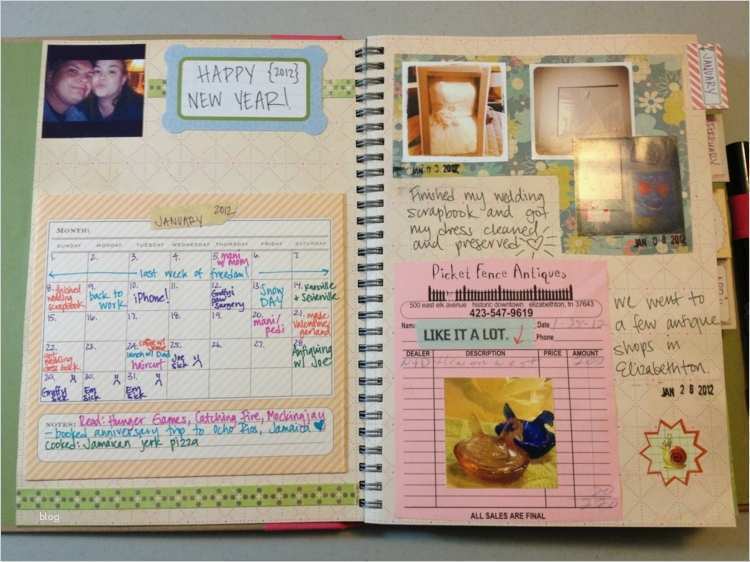 HAPPY {2012}
NEW YEAR!
JANUARY 2012
MONTH:
SUNDAY MONDAY TUESDAY WEDNESDAY THURSDAY FRIDAY SATURDAY
1. 2. 3. 4. 5. mani w/ mom 6. 7.
last week of freedom!
8. finished wedding scrapbook 9. back to work 10. iPhone! 11. 12. surgery 13. Snow DAY 14. Knoxville + Sevierville
15. 16. 17. 18. 19. 20. mani/pedi 21. made valentines garland
22. got wedding dress back 23. 24. coffee w/ lunch w/ Dad haircut 25. Joe sick 26. 27. 28. Antiquing w/ Joe
29. sick 30. Em sick 31. Em sick
NOTES: Read: Hunger Games, Catching Fire, Mockingjay
- booked anniversary trip to Ocho Rios, Jamaica
cooked: Jamaican jerk pizza
blog
JANUARY
JAN 0 3 2012
JAN 0 8 2012
Finished my wedding
scrapbook and got
my dress cleaned
and preserved
Picket Fence Antiques
500 east elk avenue historic downtown elizabethton, tn 37643
423-547-9619
Name
LIKE IT A LOT.
Date
Phone
DEALER DESCRIPTION PRICE AMOUNT
ALL SALES ARE FINAL
we went to
a few antique
shops in
Elizabethton.
JAN 2 8 2012